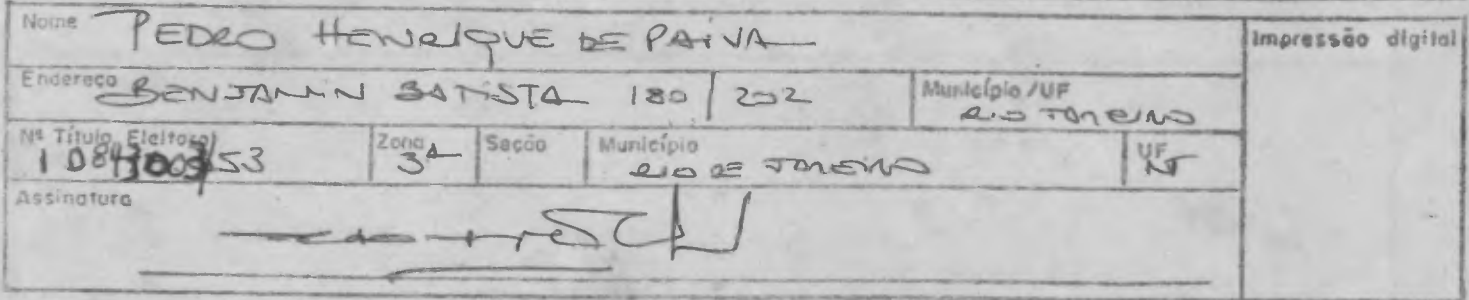 Nome PEDRO HENRIQUE DE PAIVA
Impressão digital
Endereço BENJAMIN BATISTA 180/202
Município/UF RIO JANEIRO
Nº Título Eleitoral
Zona 3ª
Seção
Município RIO DE JANEIRO
UF RJ
Assinatura